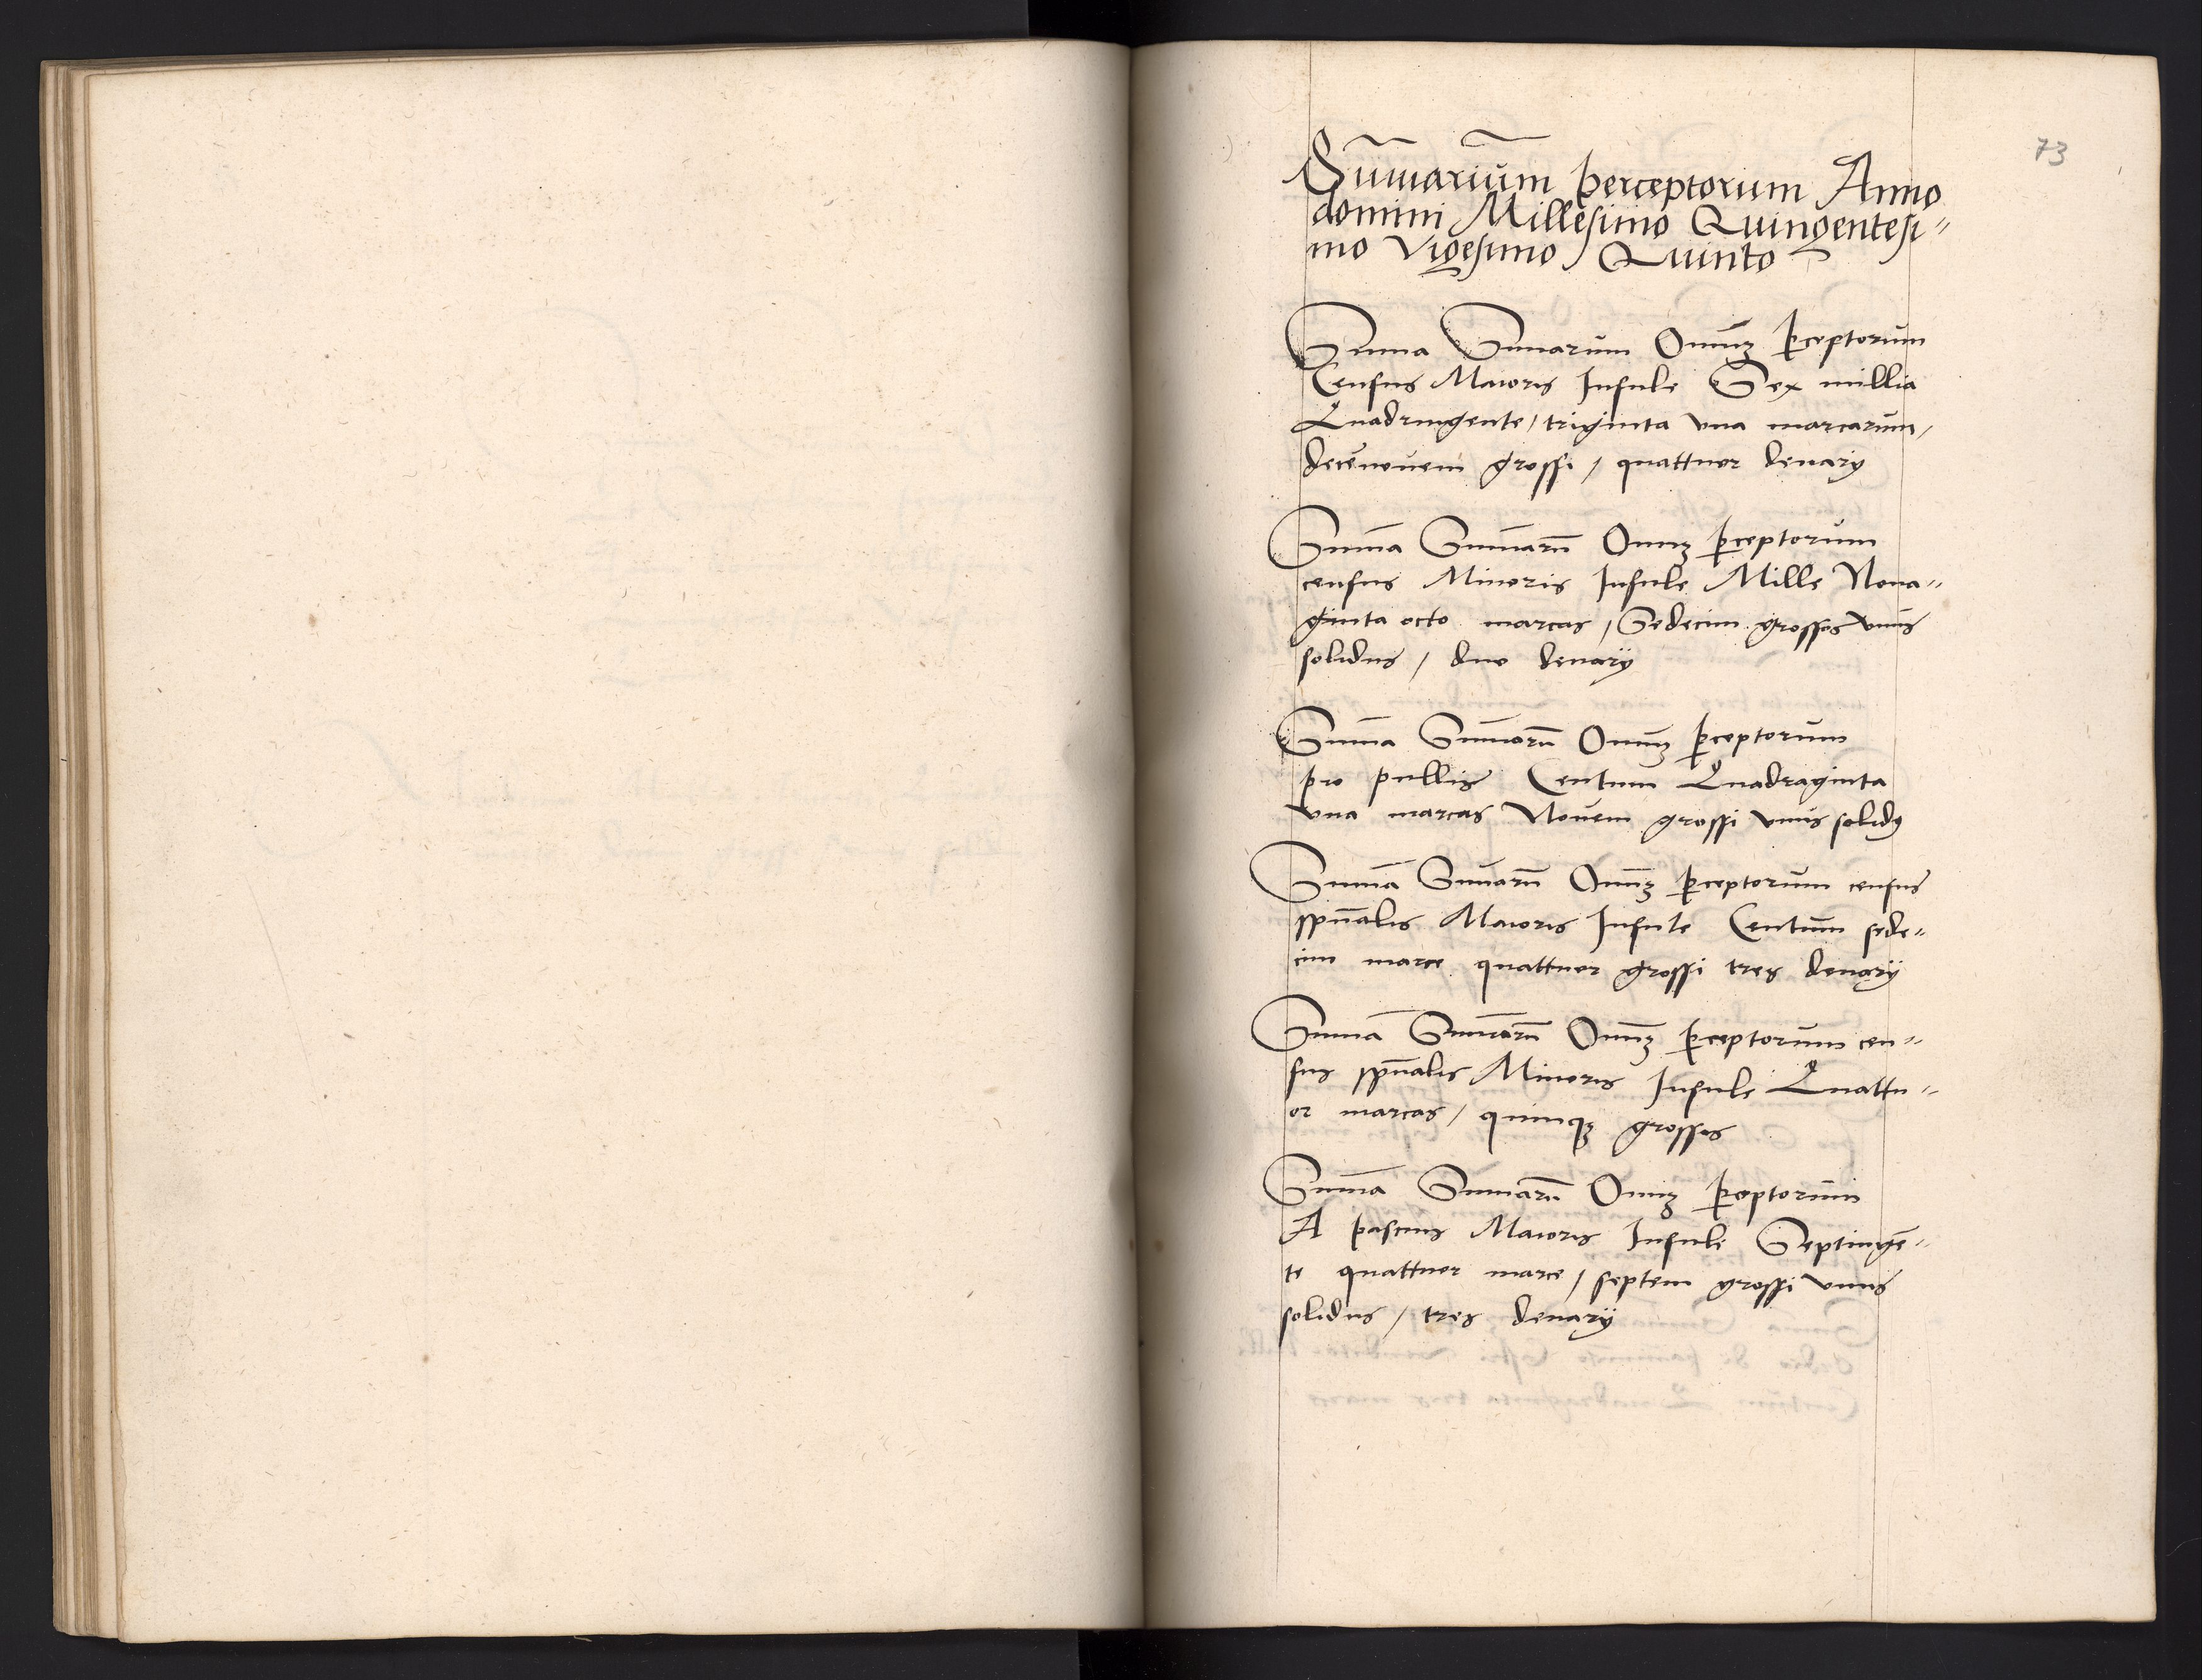 73
Sum̄ariūm perceptorum Anno
domini Millesimo Quingentesi〃
mo Vigesimo Quinto
Summa Sumarum Omniū̄ꝫ ꝑceptorum
Census Maioris Insule Sex millia
Quadringente / triginta vna marcarum /
decēnouem grossi / quattuor denarÿ
Sum̄a Sum̄arū Om̄iꝫ ꝑceptorum
census Minoris Insule Mille Nona〃
ginta octo marcas / Sedecim grossos vnus
solidus / duo denarÿ
Sum̄a Sum̄arū Om̄iꝫ ꝑceptorum
pro pullis Centum Quadraginta
vna marcas Nouem grossi vnus solidꝰ
Sum̄a Sum̄arū Om̄iꝫ ꝑceptorum census
sp̄ualis Maioris Insule Centum sede〃
cim marce quattuor grossi tres denarÿ
Sum̄a Sum̄arū Om̄iꝫ ꝑceptorum cen〃
sus sp̄ualis Minoris Insule Quattu〃
or marcas / quinqꝫ grossos
Sum̄a Sum̄arū Om̄iꝫ ꝑceptorum
A pascuis Maioris Insule Septingē〃
te quattuor marce / septem grossi vnus
solidus / tres denarÿ